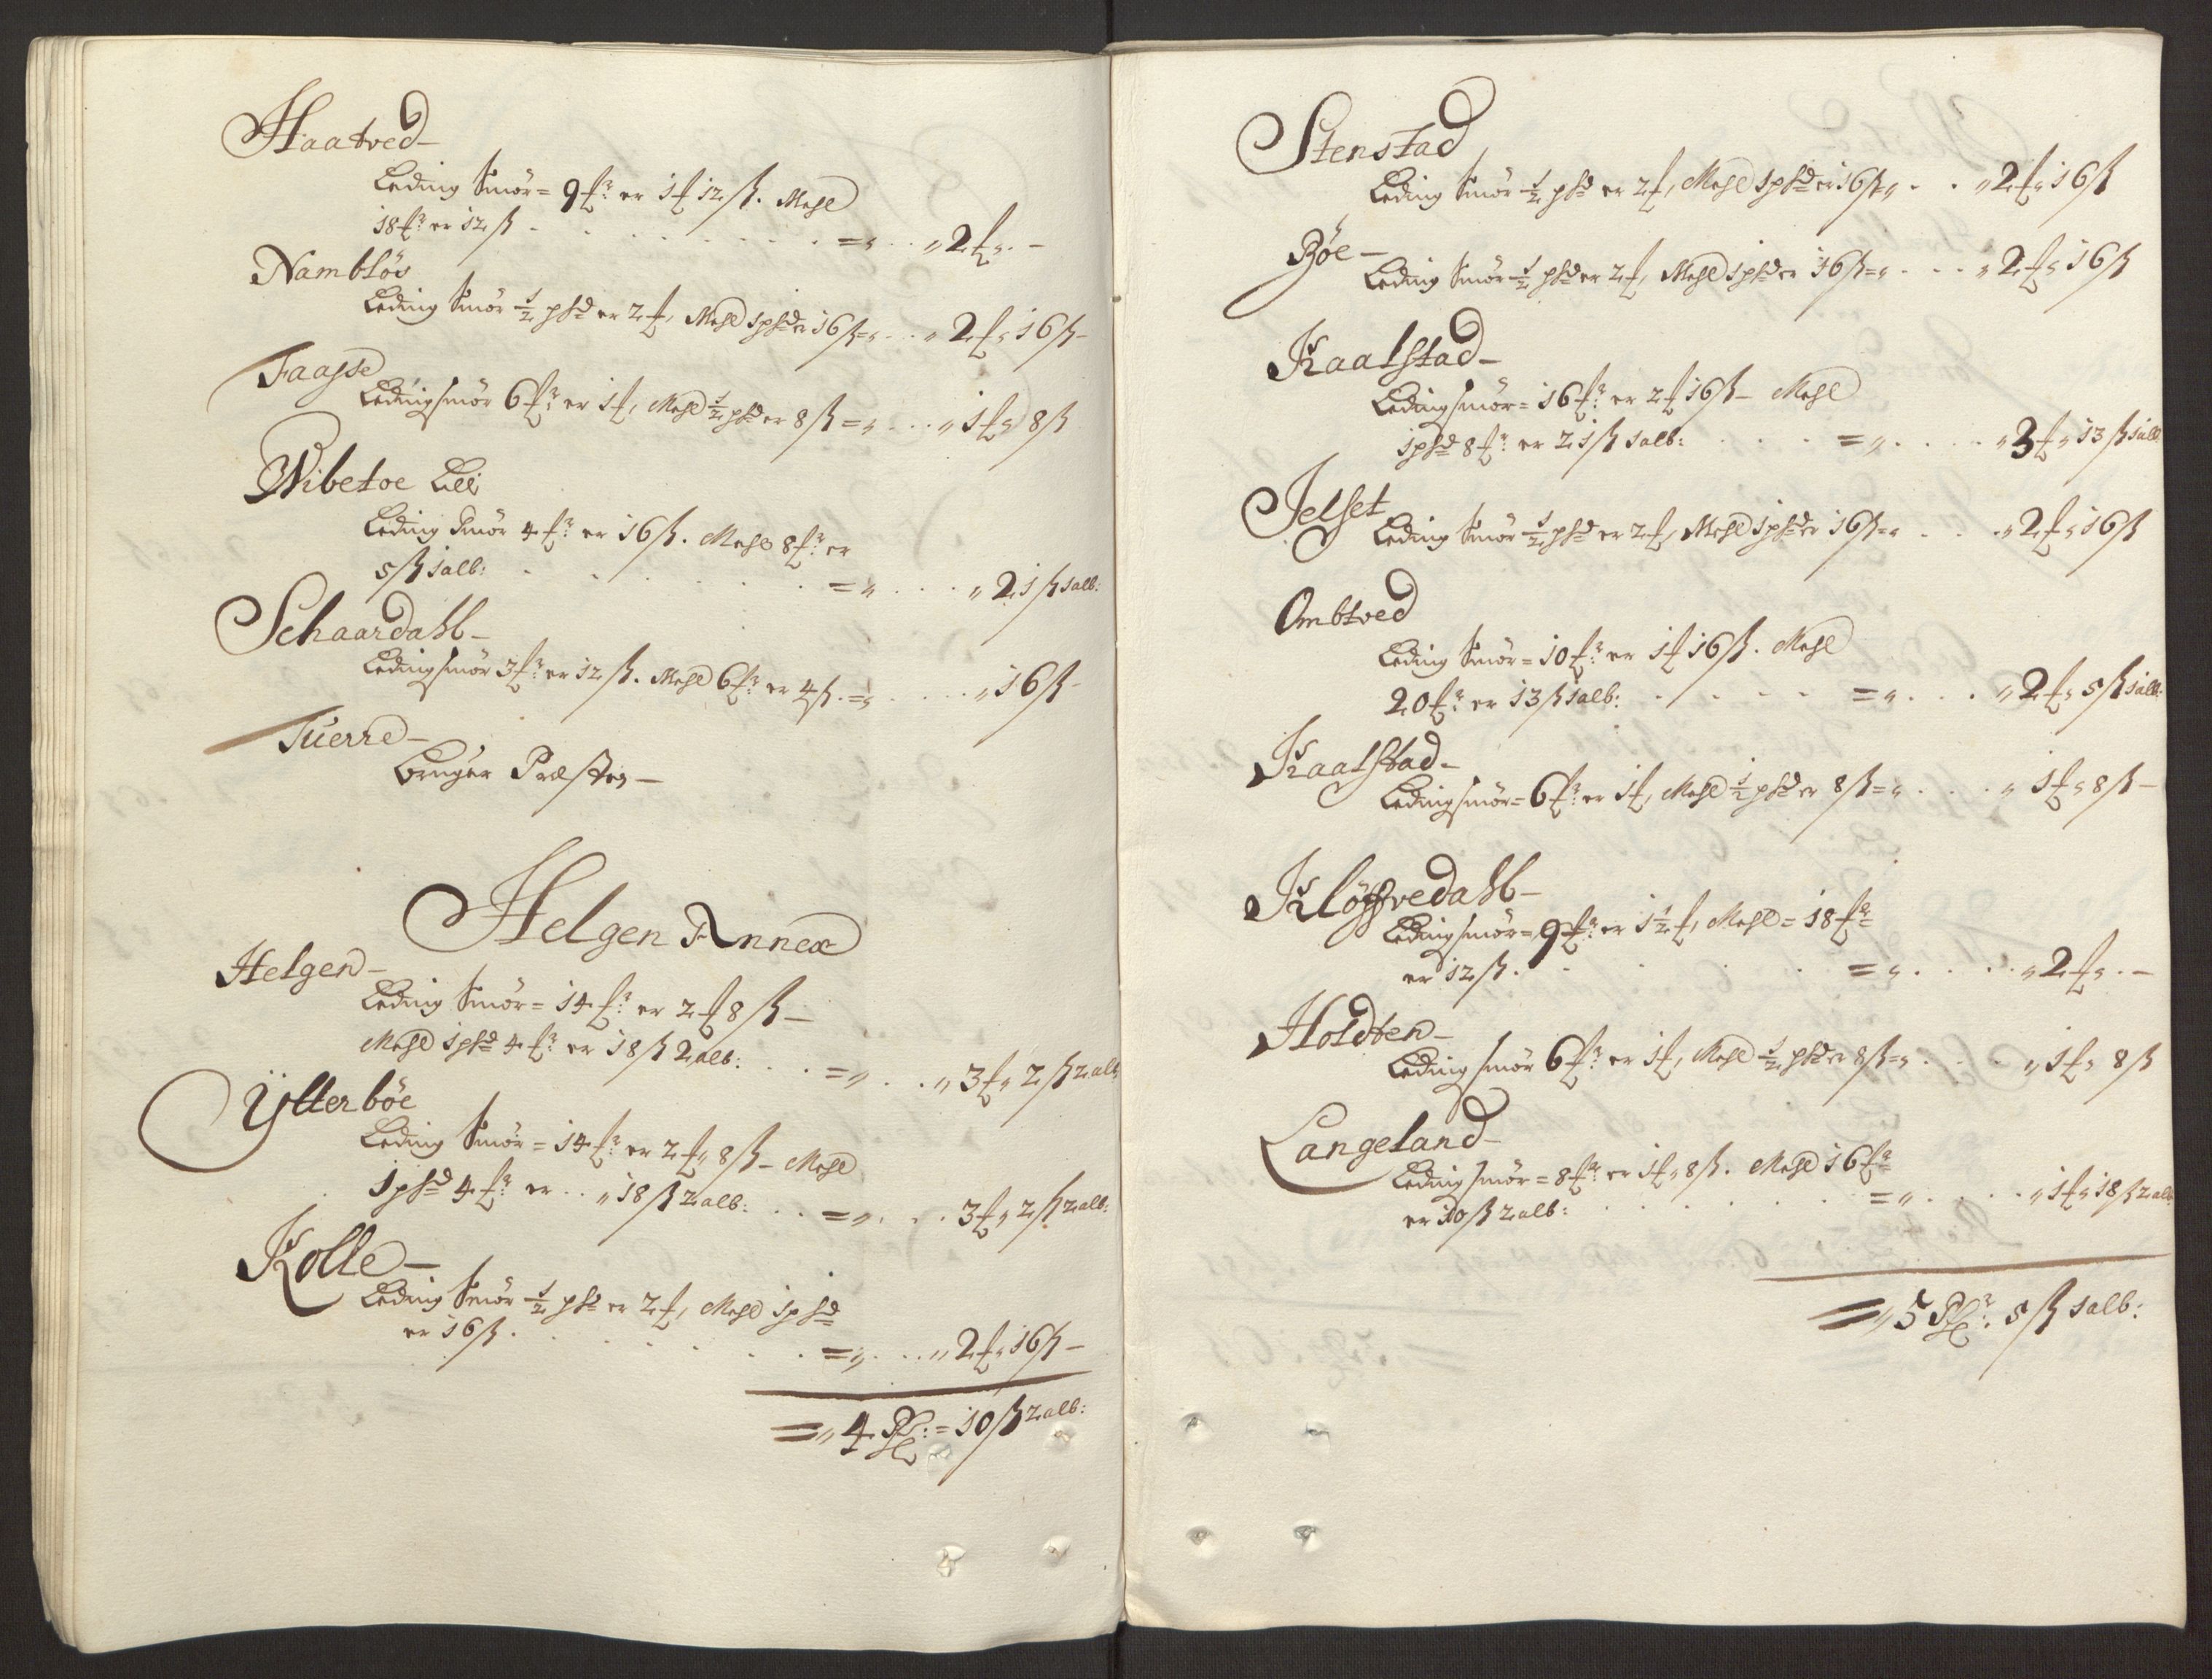 Haatved-
Leding Smör = 9 ℔r: er 1 ₰ 12 ß. Mehl
18 ℔r: er 12 ß - . . . = „ . . „ 2 ₰ „ . -
Nambløs
Leding Smör ½ phd er 2 ₰, Mehl 1 phd er 16 ß = „ . . „ 2 ₰ „ 16 ß -
Faasse
Leding smör 6 ℔r: er 1 ₰, Mehl ½ phd er 8 ß = „ . . „ 1 ₰ „ 8 ß
Wibetoe Lei
Leding Smör 4 ℔r: er 16 ß. Mehl 8 ℔r: er
5 ß 1 alb: . . . = „ . . . „ 21 ß 1 alb:
Schaardahl-
Leding smör 3 ℔r: er 12 ß. Mehl 6 ℔r: er 4 ß. = „ . . . „ 16 ß -
Tuerre-
bruger Præsten -
Helgen Annex
Helgen-
Leding Smör = 14 ℔r: er 2 ₰ 8 ß -
Mehl 1 phd 4 ℔r: er 18 ß 2 alb: . . = „ . . „ 3 ₰ „ 2 ß 2 alb
Ytterböe
Leding Smör = 14 ℔r: er 2 ₰ „ 8 ß - Mehl
1 phd 4 ℔r: er . . „ 18 ß 2 alb: . . = „ . . . 3 ₰ „ 2 ß 2 alb:
Kolle-
Leding Smör ½ phd er 2 ₰, Mehl 1 phd
er 16 ß . . . . = „ . . „ 2 ₰ „ 16 ß -
= „ 4 Rdr: = 10 ß 2 alb:
Stenstad
Leding Smör ½ phd er 2 ₰, Mehl 1 phd er 16 ß = „ . . „ 2 ₰ „ 16 ß
Böe-
Leding Smör ½ phd er 2 ₰, Mehl 1 phd er 16 ß = „ . . . „ 2 ₰ „ 16 ß
Kaalstad-
Leding smör = 16 ℔r: er 2 ₰ 16 ß - Mehl
1 phd 8 ℔r: er 21 ß 1 alb: . . . = „ . . . „ 3 ₰ „ 13 ß 1 alb
Jelset
Leding Smör ½ phd er 2 ₰, Mehl 1 phd er 16 ß = „ . . . „ 2 ₰ „ 16 ß
Ombtved
Leding Smör = 10 ℔r: er 1 ₰ 16 ß. Mehl
20 ℔r: er 13 ß 1 alb: . . . . = „ . . . „ 2 ₰ „ 5 ß 1 alb:
Kaalstad-
Leding smör = 6 ℔r: er 1 ₰, Mehl ½ phd er 8 ß = „ . . . „ 1 ₰ „ 8 ß -
Klöffvedahl-
Leding smör = 9 ℔r: er 1 ½ ₰, Mehl = 18 ℔r
er 12 ß . . . . = „ . . . „ 2 ₰ „ . -
Holdten-
Leding smör 6 ℔r: er 1 ₰, Mehl ½ phd er 8 ß = „ . . . „ 1 ₰ „ 8 ß
Langeland-
Leding smör = 8 ℔r er 1 ₰ „ 8 ß. Mehl 16 ℔r
er 10 ß 2 alb: . . . . = „ . . . „ 1 ₰ „ 18 ß 2 alb
= „ 5 Rdr: 5 ß 1 alb: